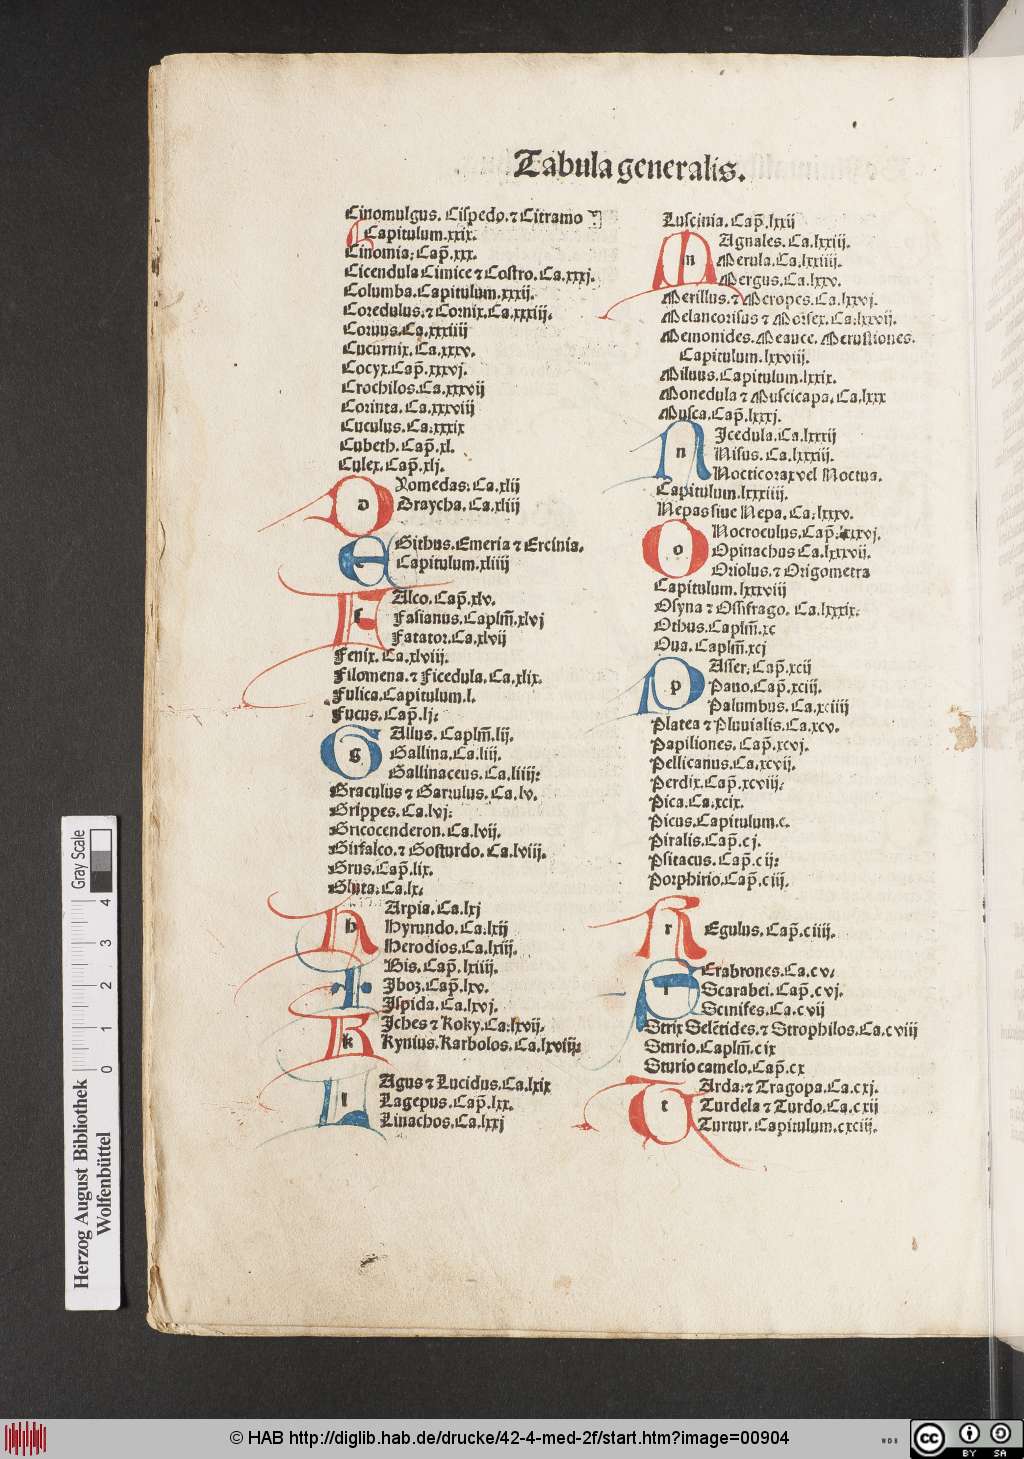 Tabula generalis.
Cinomulgus. Cispedo. ⁊ Citramo
Capitulum. xxix.
Cinomia: Cap̄. xxx.
Cicendula Cimice ⁊ Costro. Ca. xxxj.
Columba. Capitulum. xxxij.
Coredulus. ⁊ Cornix. Ca. xxxiij.
Coruus. Ca. xxxiiij
Cucurnix. Ca. xxxv.
Cocyx. Cap̄. xxxvj.
Crochilos. Ca. xxxvij
Corinta. Ca. xxxviij
Cuculus. Ca: xxxix
Cubeth. Cap̄. xl.
Culex. Cap̄. xlj.
d Romedas: Ca. xlij
Draycha. Ca. xliij
e Githus. Emeria ⁊ Ercinia.
Capitulum. xliiij
f Alco. Cap̄. xlv.
Fasianus. Caplm̄. xlvj
Fatator. Ca. xlvij
Fenix. Ca. xlviij.
Filomena. ⁊ Ficedula. Ca. xlix.
Fulica. Capitulum. l.
Fucus. Cap̄. lj:
g Allus. Caplm̄. lij.
Gallina. Ca. liij.
Gallinaceus. Ca. liiij:
Graculus ⁊ Garrulus. Ca. lv.
Grippes. Ca. lvj:
Gricocenderon. Ca. lvij.
Girfalco. ⁊ Gosturdo. Ca. lviij.
Grus. Cap̄. lix.
Gluta: Ca. lx:
h Arpia. Ca. lxj
Hyrundo. Ca: lxij
Herodios. Ca. lxiij.
i Bis. Cap̄. lxiiij.
Iboz. Cap̄. lxv.
Ispida. Ca. lxvj.
k Iches ⁊ Koky. Ca: lxvij.
Kynius. Karbolos. Ca. lxviij:
l Agus ⁊ Lucidus. Ca. lxix
Lagepus. Cap̄. lxx.
Liuachos. Ca. lxxj
Luscinia. Cap̄. lxxij
m Agnales. Ca. lxxiij.
Merula. Ca. lxxiiij.
Mergus. Ca. lxxv.
Merillus. ⁊ Meropes. Ca. lxxvj.
Melancorisus ⁊ Morfex. Ca. lxxvij.
Memonides. Meauce. Merustiones.
Capitulum. lxxviij.
Miluus. Capitulum. lxxix.
Monedula ⁊ Muscicapa. Ca. lxxx
Musca. Cap̄. lxxxj.
n Icedula. Ca. lxxxij
Nisus. Ca. lxxxiij.
Nocticorax vel Noctua.
Capitulum. lxxxiiij.
Nepas siue Nepa. Ca: lxxxv.
o Nocroculus. Cap̄: lxxxvj.
Opinachus Ca. lxxxvij.
Oriolus. ⁊ Origometra
Capitulum. lxxxviij
Osyna ⁊ Ossifrago. Ca. lxxxix:
Othus. Caplm̄. xc
Oua. Caplm̄. xcj
p Asser: Cap̄. xcij
Pauo. Cap̄. xciij.
Palumbus. Ca. xciiij
Platea ⁊ Pluuialis. Ca. xcv.
Papiliones. Cap̄. xcvj.
Pellicanus. Ca. xcvij.
Perdix. Cap̄. xcviij:
Pica. Ca. xcix.
Picus. Capitulum. c.
Piralis. Cap̄. cj.
Psitacus. Cap̄. cij:
Porphirio. Cap̄. ciij.
r Egulus. Cap̄. ciiij.
Crabrones. Ca. cv:
Scarabei. Cap̄. cvj.
Scinifes. Ca. cvij
Strix Selētides. ⁊ Strophilos. Ca. cviij
Sturio. Caplm̄. cix
Sturio camelo. Cap̄. cx
t Arda: ⁊ Tragopa. Ca. cxj.
Turdela ⁊ Turdo. Ca. cxij
Turtur. Capitulum. cxciij.
Gray Scale
0 1 2 3 4
Herzog August Bibliothek
Wolfenbüttel
© HAB http://diglib.hab.de/drucke/42-4-med-2f/start.htm?image=00904
WDB
cc BY SA